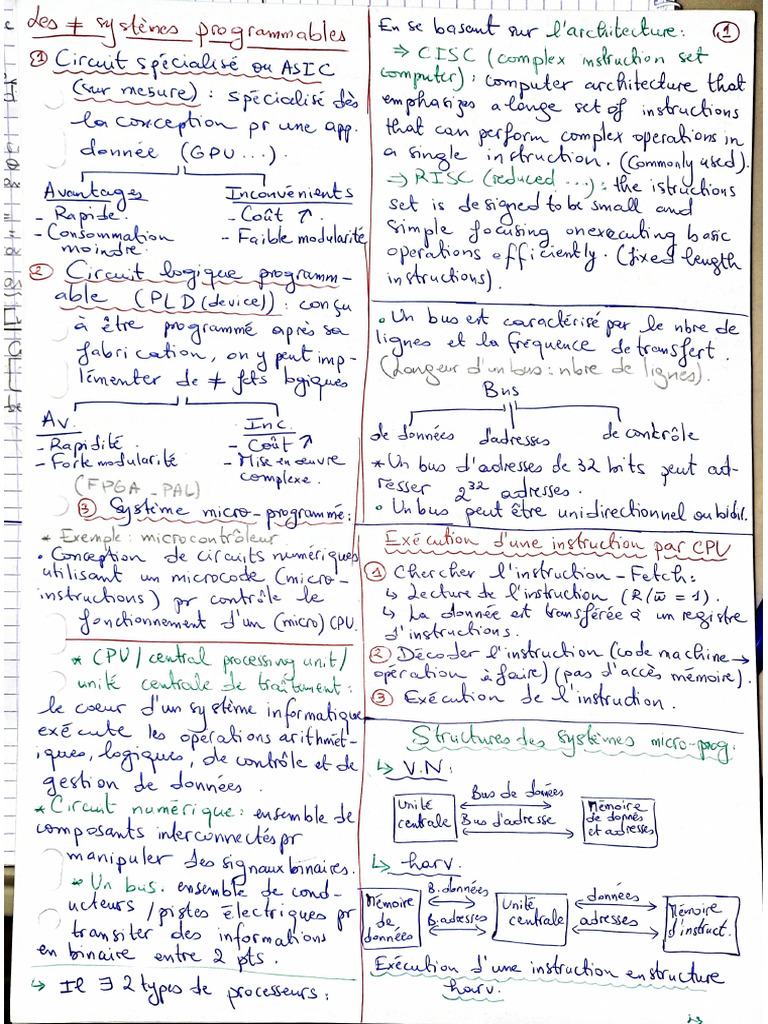 des ≠ systèmes programmables
① Circuit spécialisé ou ASIC
(sur mesure) : spécialisé dès
la conception pr une app.
donnée (GPU ...).
Avantages
- Rapide.
- Consommation
moindre.
Inconvénients
- Coût ↑.
- Faible modularité
② Circuit logique programm-
able (PLD (device)) : conçu
à être programmé après sa
fabrication, on y peut imp-
lémenter de ≠ fcts logiques
Av.
- Rapidité.
- Forte modularité
(FPGA _ PAL)
Inc.
- Coût ↑
- Mise en œuvre
complexe.
③ Système micro-programmé:
* Exemple : microcontrôleur
• Conception de circuits numériques
utilisant un microcode (micro-
instructions) pr contrôle le
fonctionnement d'un (micro) CPU.
* CPU / central processing unit /
unité centrale de traitement :
le coeur d'un système informatique
exécute les opérations arithmét-
iques, logiques, de contrôle et de
gestion de données.
* Circuit numérique : ensemble de
composants interconnectés pr
manipuler des signaux binaires.
* Un bus. ensemble de cond-
ucteurs / pistes électriques pr
transiter des informations
en binaire entre 2 pts.
↳ Il ∃ 2 types de processeurs :
①
En se basant sur l'architecture:
⇒ CISC (complex instruction set
computer) : computer architecture that
emphasizes a large set of instructions
that can perform complex operations in
a single instruction. (Commonly used).
⇒ RISC (reduced ...) : the istructions
set is designed to be small and
simple focusing on executing basic
operations efficiently. (fixed length
instructions).
• Un bus est caractérisé par le nbre de
lignes et la fréquence de transfert.
(Longeur d'un bus : nbre de lignes).
Bus
de données d'adresses de contrôle
* Un bus d'adresses de 32 bits peut ad-
resser 2³² adresses.
• Un bus peut être unidirectionnel ou bidir.
Exécution d'une instruction par CPU
① Chercher l'instruction - Fetch :
↳ Lecture de l'instruction (R/w̅ = 1).
↳ La donnée est transférée à un registre
d'instructions.
② Décoder l'instruction (code machine →
opération à faire) (pas d'accès mémoire).
③ Exécution de l'instruction.
Structures des systèmes micro-prog.
↳ V.N :
Unité
centrale
Bus de données
Bus d'adresse
Mémoire
de donnés
et adresses
↳ harv.
Mémoire
de
données
B. données
B. adresses
Unité
centrale
données
adresses
Mémoire
d'instruct.
Exécution d'une instruction en structure
harv.